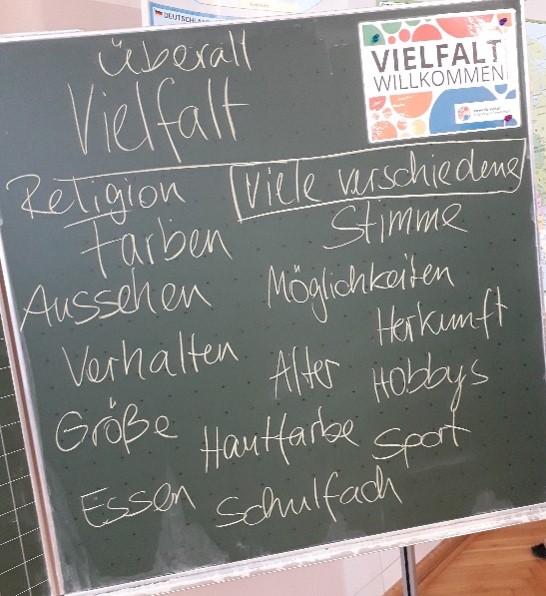 DEUTSCHLAND
überall
Vielfalt
VIELFALT
WILLKOMMEN
Religion
viele verschiedene
Farben
Stimme
Aussehen
Möglichkeiten
Herkunft
Verhalten
Alter
Hobbys
Größe
Hautfarbe
Sport
Essen
Schulfach